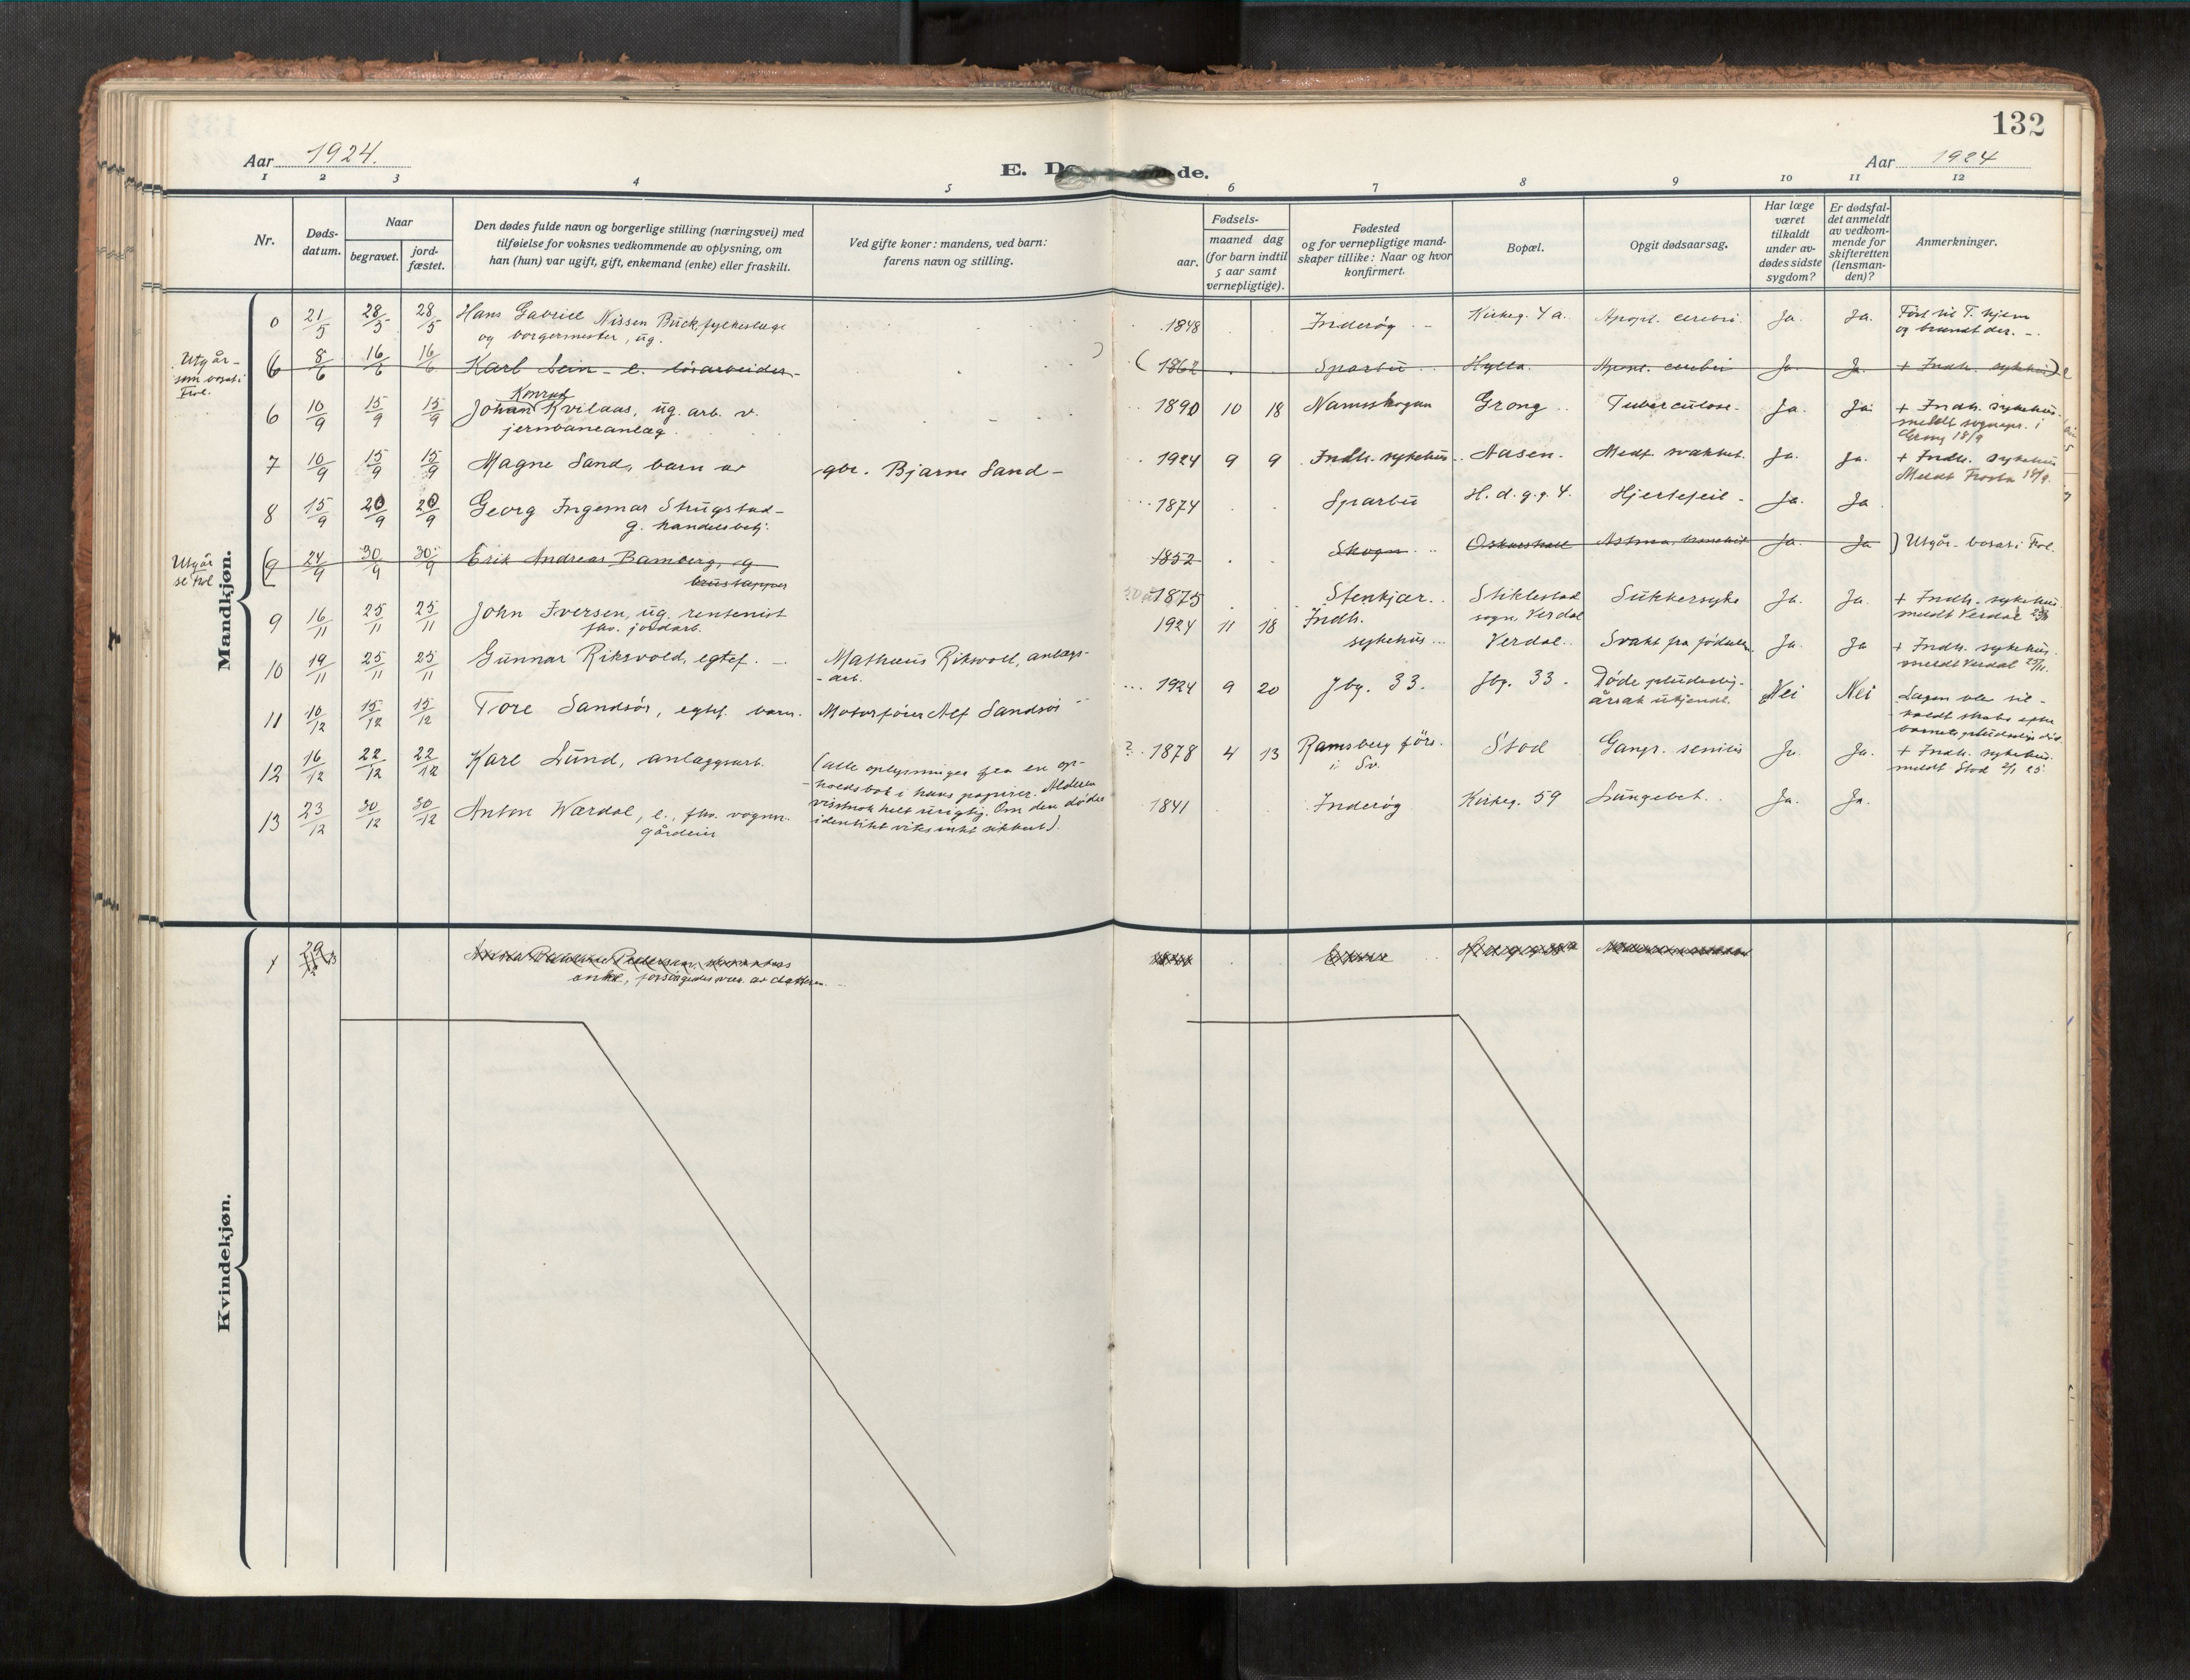 132
Aar 1924.
E. D de.
Aar 1924
1 2 3 4 5 6 7 8 9 10 11 12
Nr.
Døds-
datum.
Naar
begravet.
jord-
fæstet.
Den dødes fulde navn og borgerlige stilling (næringsvei) med
tilføielse for voksnes vedkommende av oplysning, om
han (hun) var ugift, gift, enkemand (enke) eller fraskilt.
Ved gifte koner: mandens, ved barn:
farens navn og stilling.
Fødsels-
aar.
maaned dag
(for barn indtil
5 aar samt
vernepligtige).
Fødested
og for vernepligtige mand-
skaper tillike: Naar og hvor
konfirmert.
Bopæl.
Opgit dødsaarsag.
Har læge
været
tilkaldt
under av-
dødes sidste
sygdom?
Er dødsfal-
det anmeldt
av vedkom-
mende for
skifteretten
(lensman-
den)?
Anmerkninger.
Mandkjøn.
0 21/5 28/5 28/5 Hans Gabriel Nissen Buck fylkeslæge
og borgermester, ug.
1848 Inderøy Kirkeg. 4 a. Apopl. cerebri. Ja. Ja. Ført til T. hjem
og brændt der.
Utgår
som bosat i
Frol.
(6 8/6 16/6 16/6 Karl Lein e. løsarbeider
(1862 Sparbu Hylla. Apopl. cerebri Ja. Ja. + Indh. sykehus)
6 10/9 15/9 15/9 Johan Konrad Kvilaas, ug. arb. v.
jernbaneanlæg
1890 10 18 Namsskogan Grong Tuberculose. Ja. Ja. + Indh. sykehus.
meldt sognepr. i
Grong 18/9
7 10/9 15/9 15/9 Magne Sand, barn av gbr. Bjarne Sand
1924 9 9 Indh. sykehus Aasen. Medf. svakhet. Ja. Ja. + Indh. sykehus
Meldt Frosta 18/9.
8 15/9 20/9 20/9 Georg Ingemar Skugstad
g. handelsbetj.
1874 Sparbu H. d. g. g. 4. Hjertefeil Ja. Ja
Utgår
se Frol
(9 24/9 30/9 30/9 Erik Andreas Bamberg, ug
brustapper
1852 Skogn Oskarshall Astma, bronchit Ja. Ja ) Utgår bosat i Frol.
9 16/11 25/11 25/11 John Iversen, ug. rentenist
fhv. jordarb.
1875 Stenkjær Stiklestad
sogn, Verdal Sukkersyke Ja. Ja. + Indh. sykehus.
meldt Verdal
10 19/11 25/11 25/11 Gunnar Riksvold, egtef. Mathæus Rikvold, anlægs-
arb.
1924 11 18 Indh.
sykehus Verdal Svakt fra fødselen Ja. Ja + Indh. sykehus.
meldt Verdal 25/11.
11 10/12 15/12 15/12 Tore Sandsør, egtef. barn. Motorfører Alf Sandsør
1924 9 20 Jbg. 33. Jbg. 33. Døde pludselig
årsak ukjendt. Nei Nei Lægen ble til-
kaldt straks efter
barnets pludselige død.
12 16/12 22/12 22/12 Karl Lund, anlæggsarb. (alle oplysninger fra en op-
holdsbok i hans papirer. Alderen
visstnok helt urigtig. Om den dødes
identitet vites intet sikkert).
? 1878 4 13 Ramsberg förs.
i Sv. Stod Gangr. senilis Ja Ja. + Indh. sykehus.
meldt Stod 2/1 25
13 23/12 30/12 30/12 Anton Wærdal, e., fhv. vognm.
gårdeier
1841 Inderøy Kirkeg. 59 Lungebet. Ja. Ja.
Kvindekjøn.
1 29/12 Pedersen
enke, forsørgedes væs. av datteren